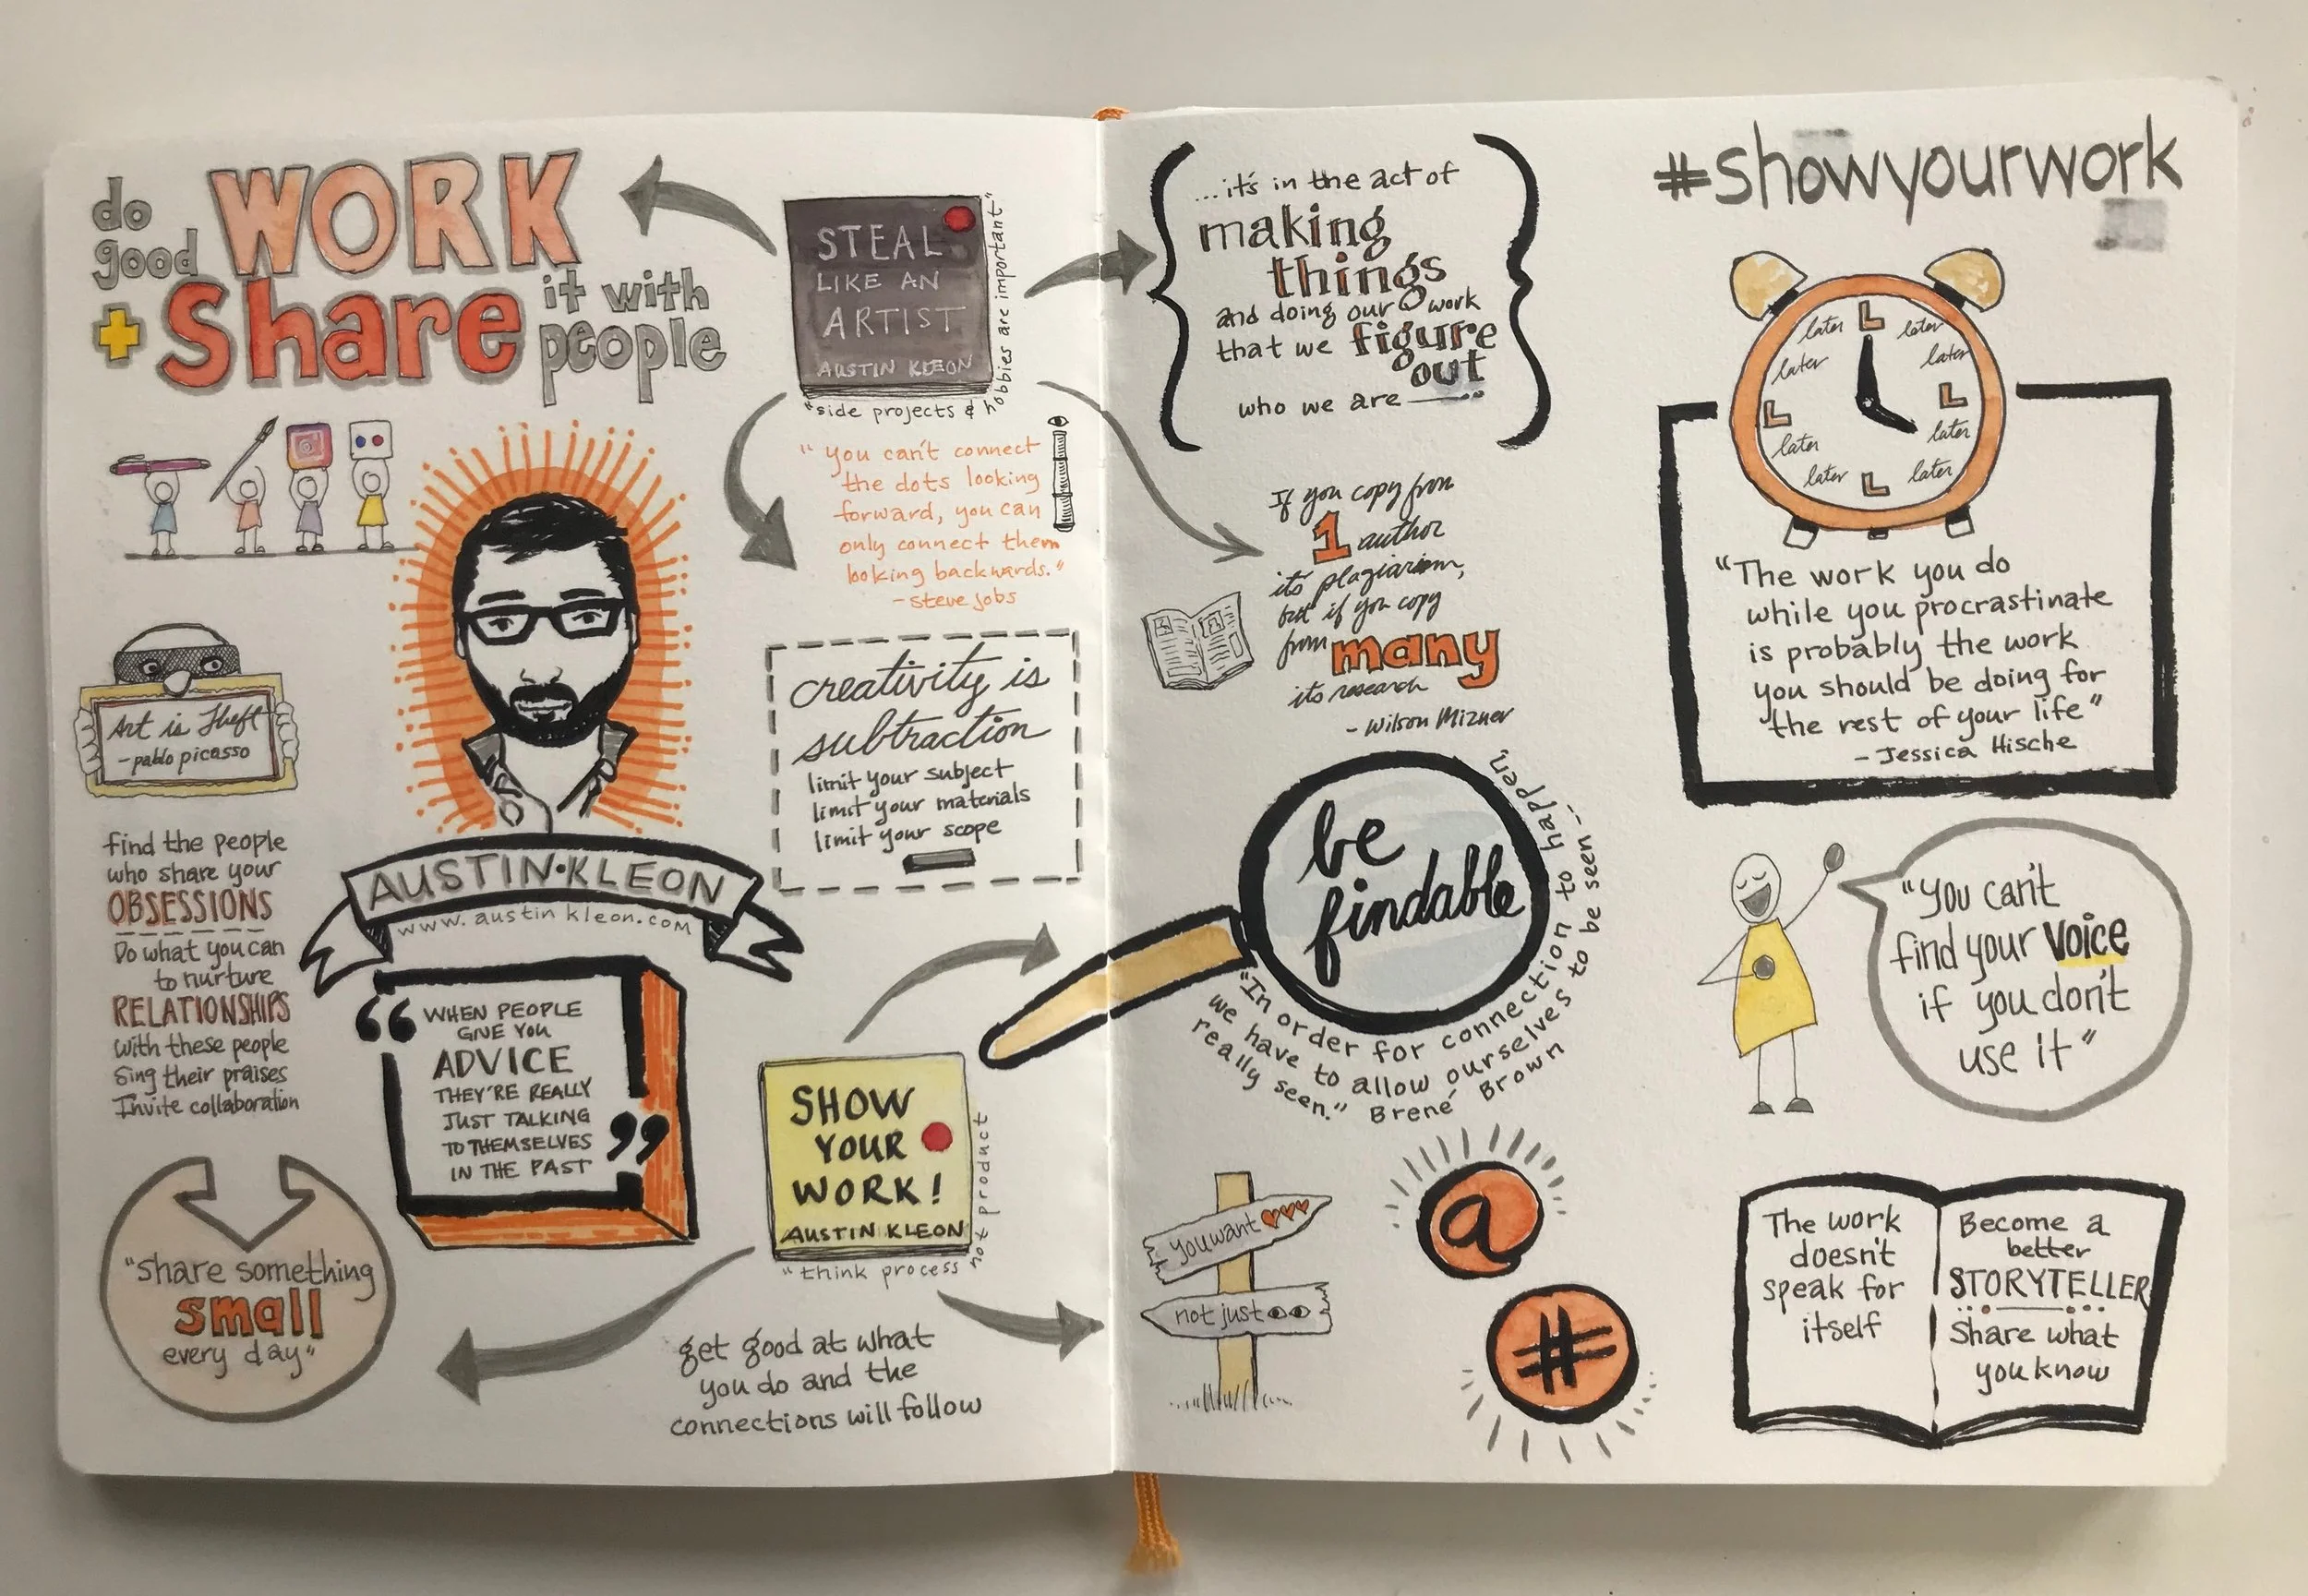 do
good WORK
+ Share it with
people
STEAL
LIKE AN
ARTIST
AUSTIN KLEON
"side projects & hobbies are important"
"you can't connect
the dots looking
forward, you can
only connect them
looking backwards."
-steve jobs
Art is Theft
-pablo picasso
creativity is
subtraction
limit your subject
limit your materials
limit your scope
find the people
who share your
OBSESSIONS
Do what you can
to nurture
RELATIONSHIPS
with these people
Sing their praises
Invite collaboration
AUSTIN•KLEON
www.austinkleon.com
“WHEN PEOPLE
GIVE YOU
ADVICE
THEY'RE REALLY
JUST TALKING
TO THEMSELVES
IN THE PAST”
SHOW
YOUR
WORK!
AUSTIN KLEON
"think process not product
"Share something
small
every day"
get good at what
you do and the
connections will follow
...it's in the act of
making
things
and doing our work
that we figure
out
who we are
If you copy from
1 author
it's plagiarism,
but if you copy
from many
its research
- Wilson Mizner
be
findable
"In order for connection to happen,
we have to allow ourselves to be seen...
really seen." Brené Brown
you want
not just
@
#
#showyourwork
L
later later
later later
L L
later later
later later
L
"The work you do
while you procrastinate
is probably the work
you should be doing for
the rest of your life"
- Jessica Hische
"You can't
find your voice
if you don't
use it"
The work
doesn't
speak for
itself
Become a
better
STORYTELLER
Share what
you know